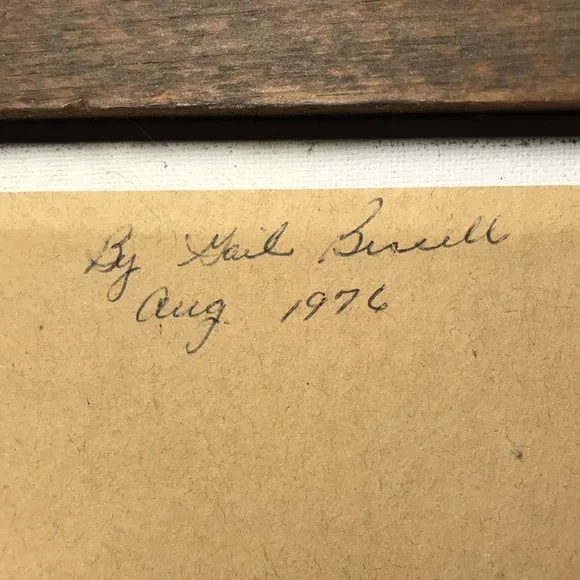 By Gail Bissell
Aug. 1976